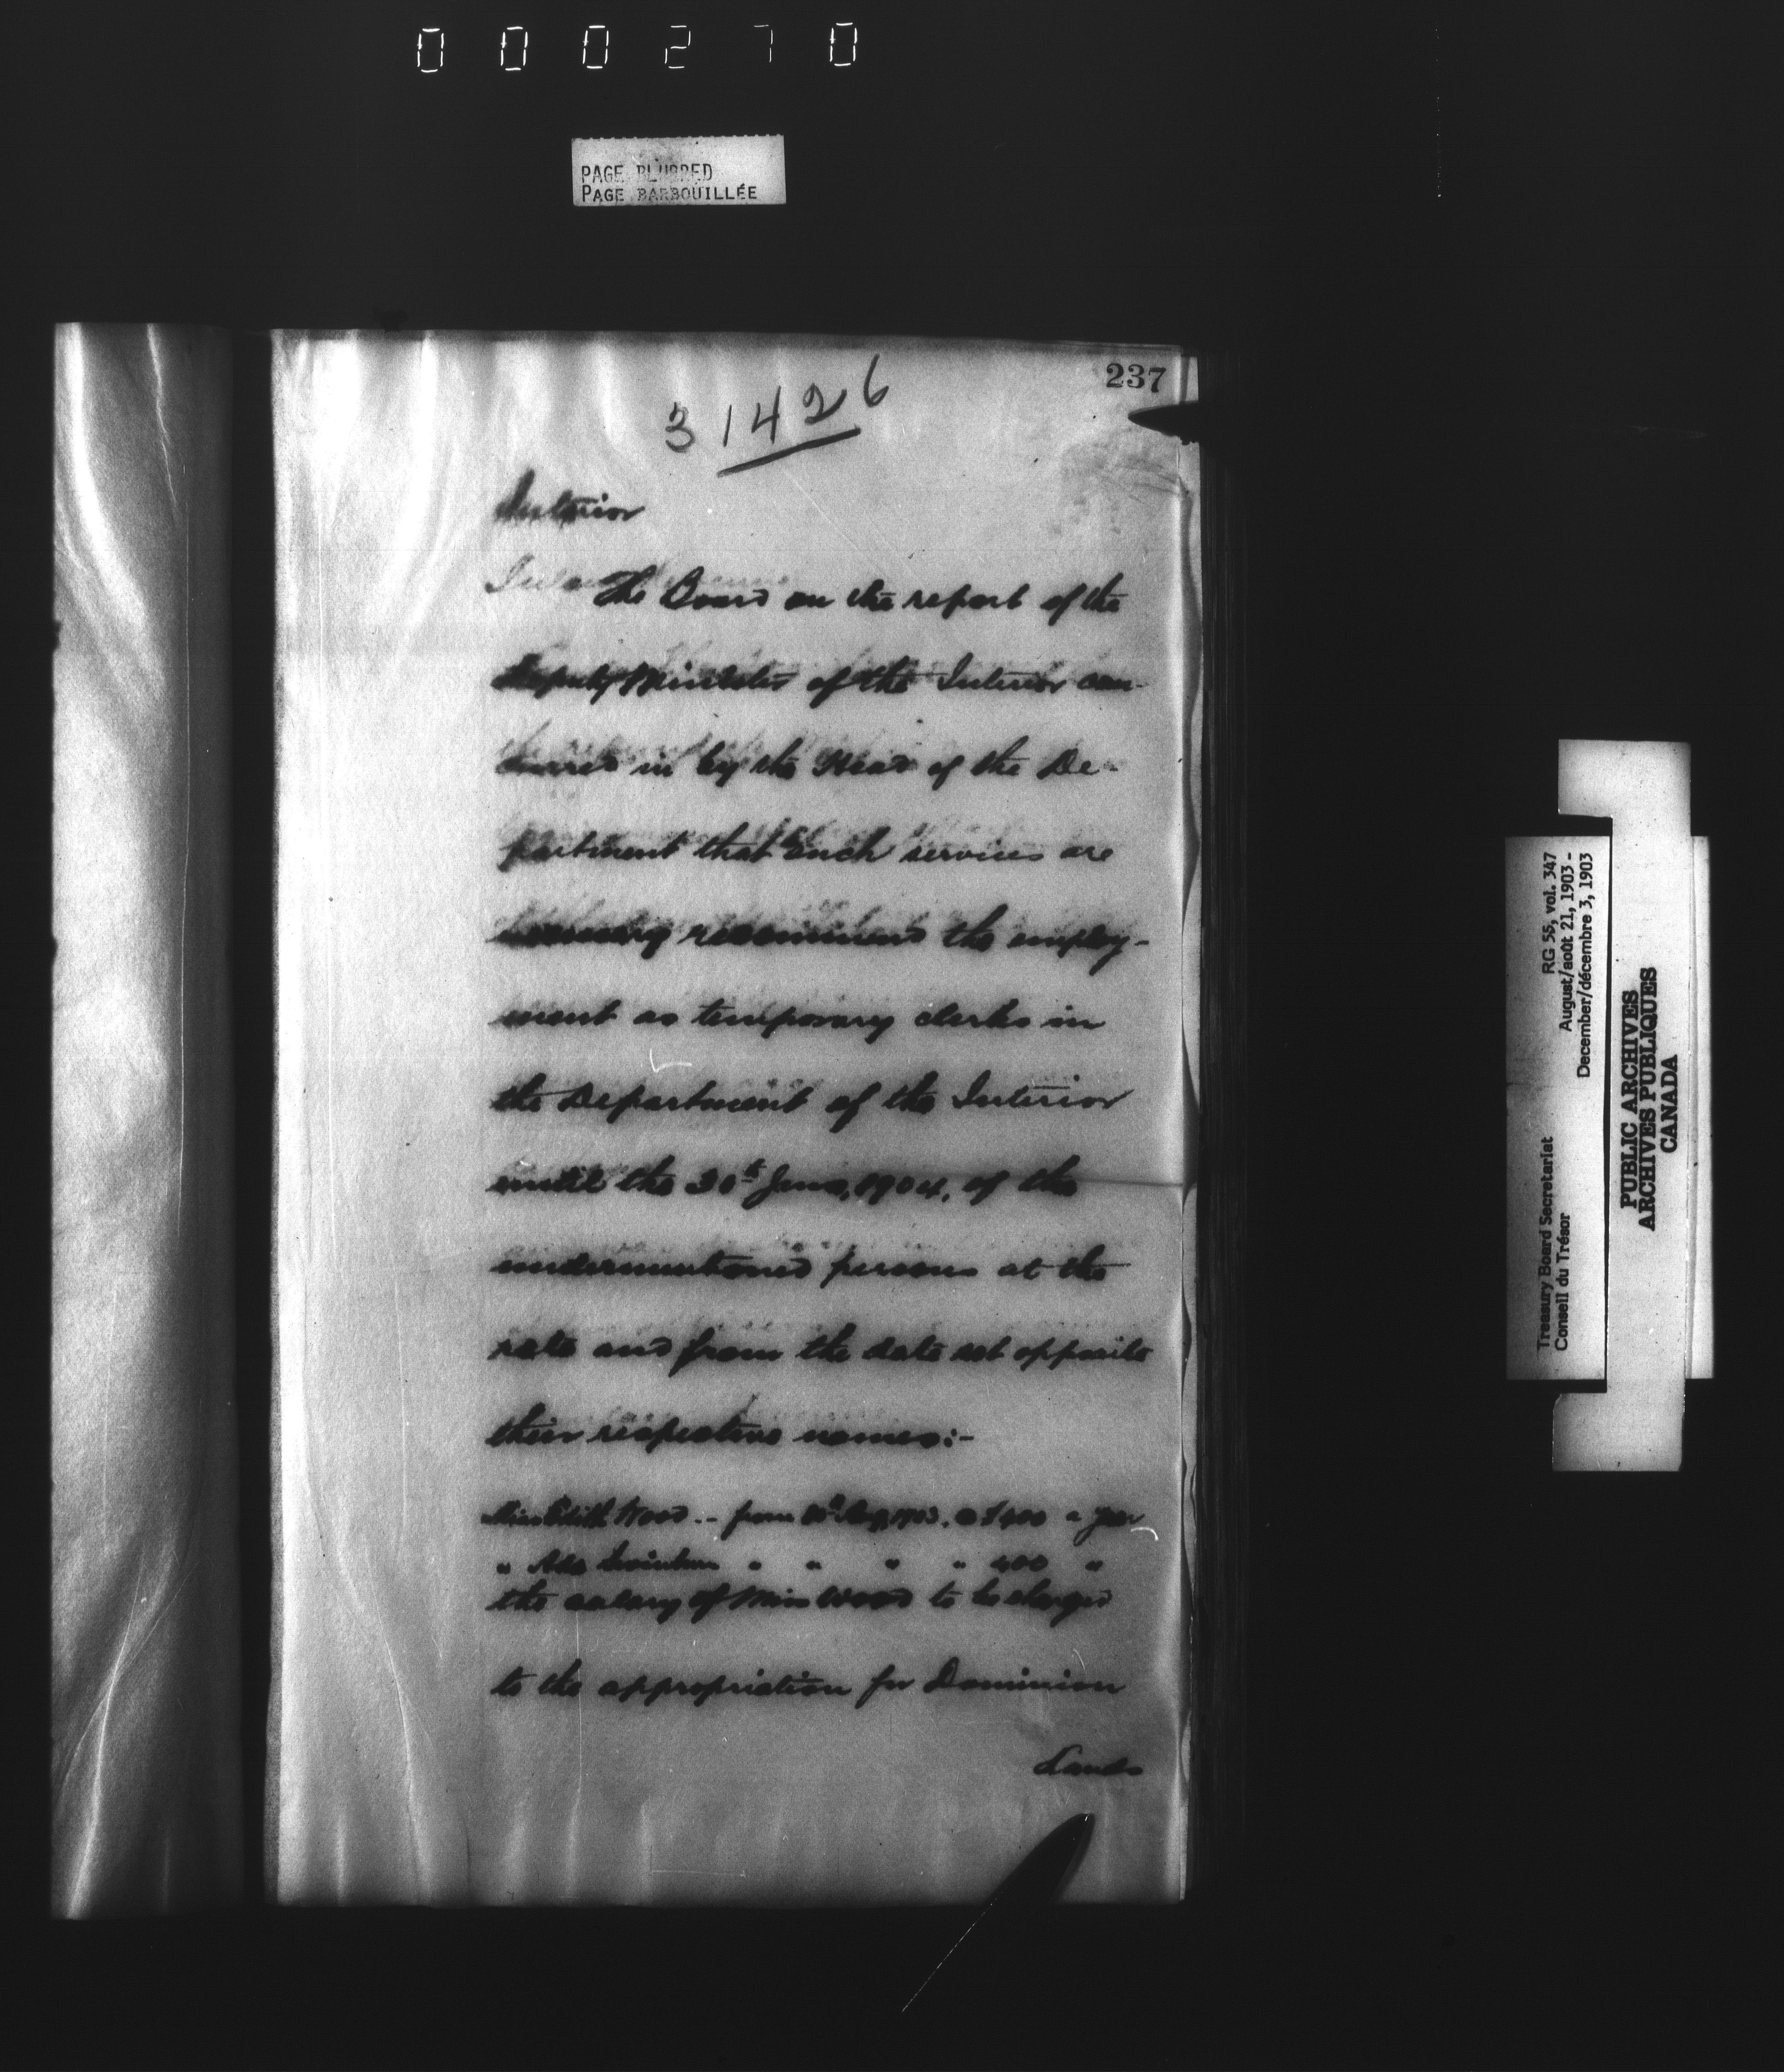 000270
PAGE BLURRED
PAGE BARBOUILLÉE
237
31426
Interior
The Board on the report of the
Deputy Minister of the Interior con-
curred in by the Head of the De-
partment that such services are
necessary recommend the employ-
ment as temporary clerks in
the Department of the Interior
until the 30th June, 1904, of the
undermentioned persons at the
rate and from the date set opposite
their respective names:-
Miss Edith Wood -- from 1903. @ $400 a year
" Ada " " " " 400 "
the salary of Miss Wood to be charged
to the appropriation for Dominion
Lands
Treasury Board Secretariat RG 55, vol. 347
Conseil du Trésor August/août 21, 1903 -
December/décembre 3, 1903
PUBLIC ARCHIVES
ARCHIVES PUBLIQUES
CANADA